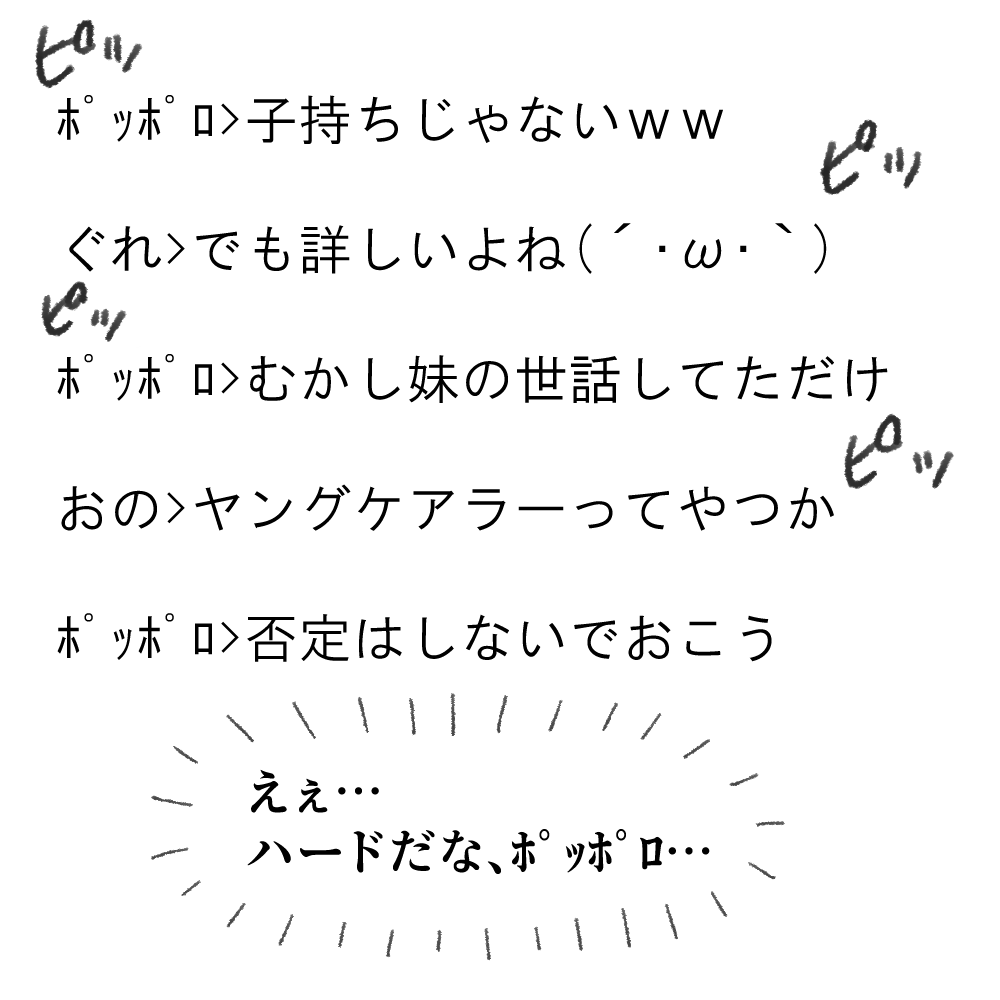 ピッ
ﾎﾟｯﾎﾟﾛ>子持ちじゃないｗｗ
ピッ
ぐれ>でも詳しいよね(´･ω･`)
ピッ
ﾎﾟｯﾎﾟﾛ>むかし妹の世話してただけ
ピッ
おの>ヤングケアラーってやつか
ﾎﾟｯﾎﾟﾛ>否定はしないでおこう
えぇ…
ハードだな、ﾎﾟｯﾎﾟﾛ…